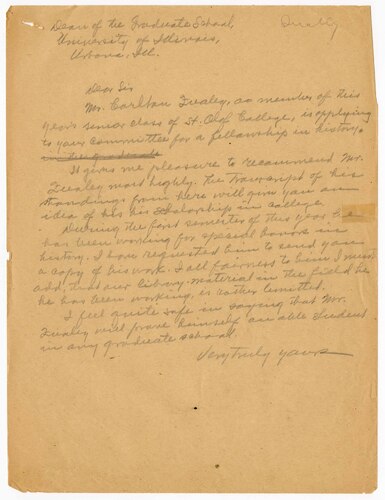 Dean of the Graduate School,
Qualey
University of Illinois,
Urbana, Ill.
Dear Sir
Mr. Carlton Qualey, as member of this
year's senior class of St. Olaf College, is applying
to your committee for a fellowship in history.
in the graduate
It gives me pleasure to recommend Mr.
Qualey most highly. The transcript of his
standings from here will give you an
idea of his scholarship in college.
During the first semester of this year he
has been working for special honors in
history. I have requested him to send you
a copy of his work. In all fairness to him I must
add, that our library material in the field he
he has been working, is rather limited.
I feel quite safe in saying that Mr.
Qualey will prove himself an able student
in any graduate school.
Very truly yours